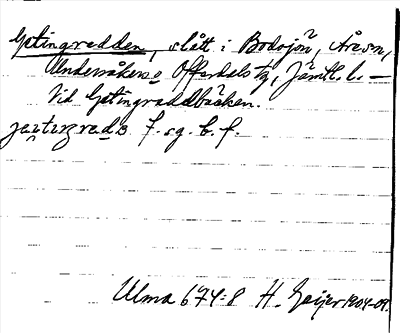 Getingredden, slått i Bodsjön, Åresn,
Undersåkers o Offerdals tg, Jämtl. l. —
Vid Getingreddbäcken.
f. sg. b. f.
Ulma 674:8 H. Geijer 1904-09.